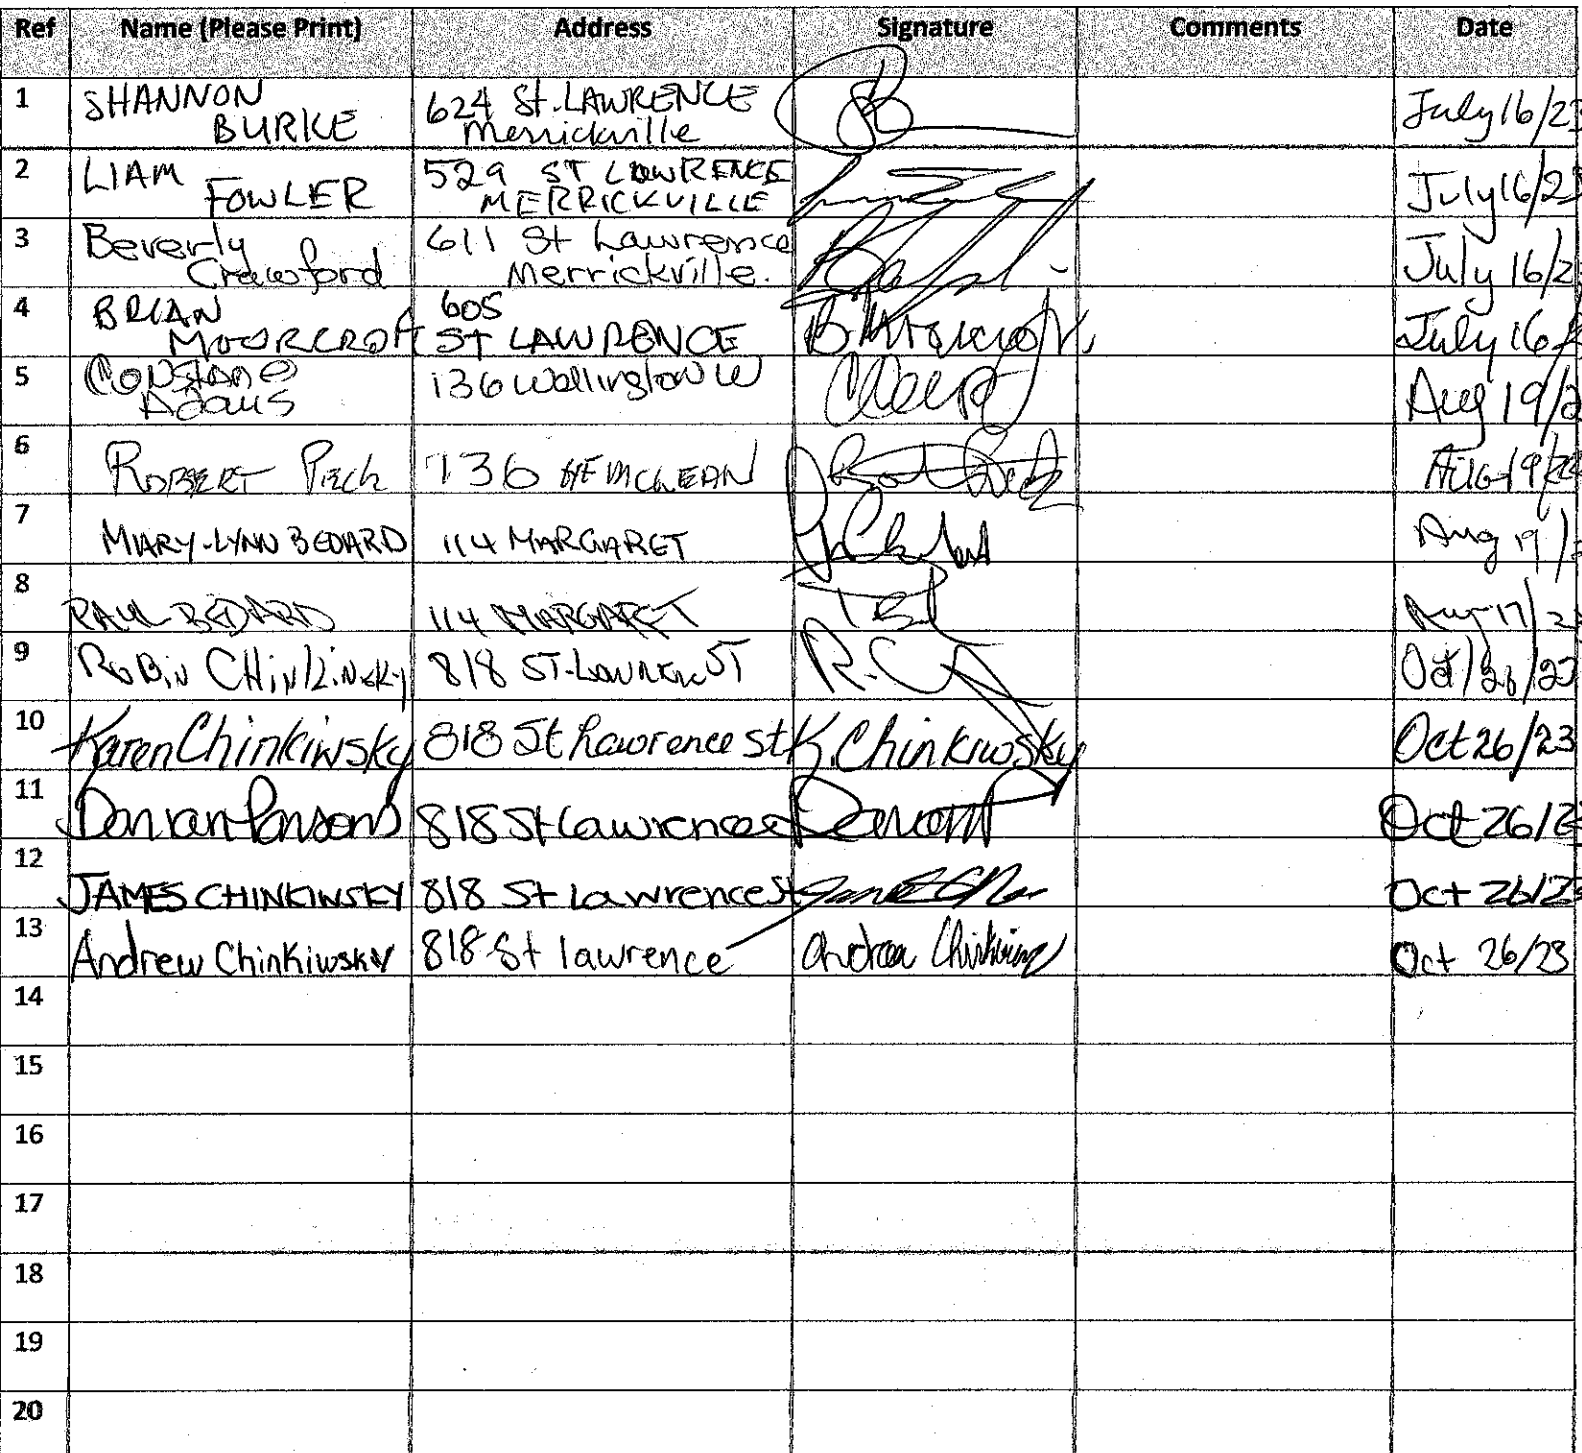 Ref Name (Please Print) Address Signature Comments Date
1 SHANNON BURKE 624 St. LAWRENCE Merrickville July 16/23
2 LIAM FOWLER 529 ST LAWRENCE MERRICKVILLE July 16/2
3 Beverly Crawford 611 St Lawrence Merrickville. July 16/2
4 BRIAN MOORCROFT 605 ST LAWRENCE B Moorcroft July 16/
5 Adams 136 Wellington W Aug 19/2
6 ROBERT 736 McLEAN AUG 19/
7 MARY-LYNN BEDARD 114 MARGARET Aug 19/
8 PAUL BEDARD 114 MARGARET 2
9 ROBIN 818 ST. ST R.C Oct/26/23
10 Karen Chinkiwsky 818 St Lawrence St K. Chinkiwsky Oct 26/23
11 Parsons 818 St Lawrence Oct 26/2
12 JAMES CHINKIWSKY 818 St Lawrence St Oct 26/23
13 Andrew Chinkiwsky 818 St lawrence Oct 26/23
14
15
16
17
18
19
20